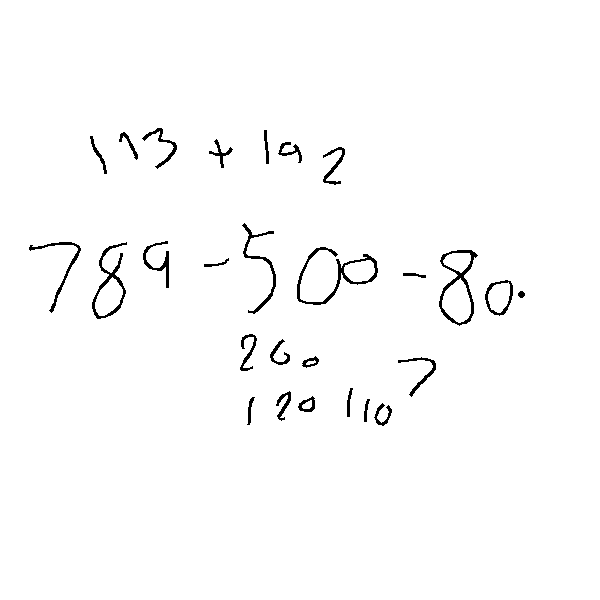 113 + 192
789 - 500 - 80.
200
120 110 7